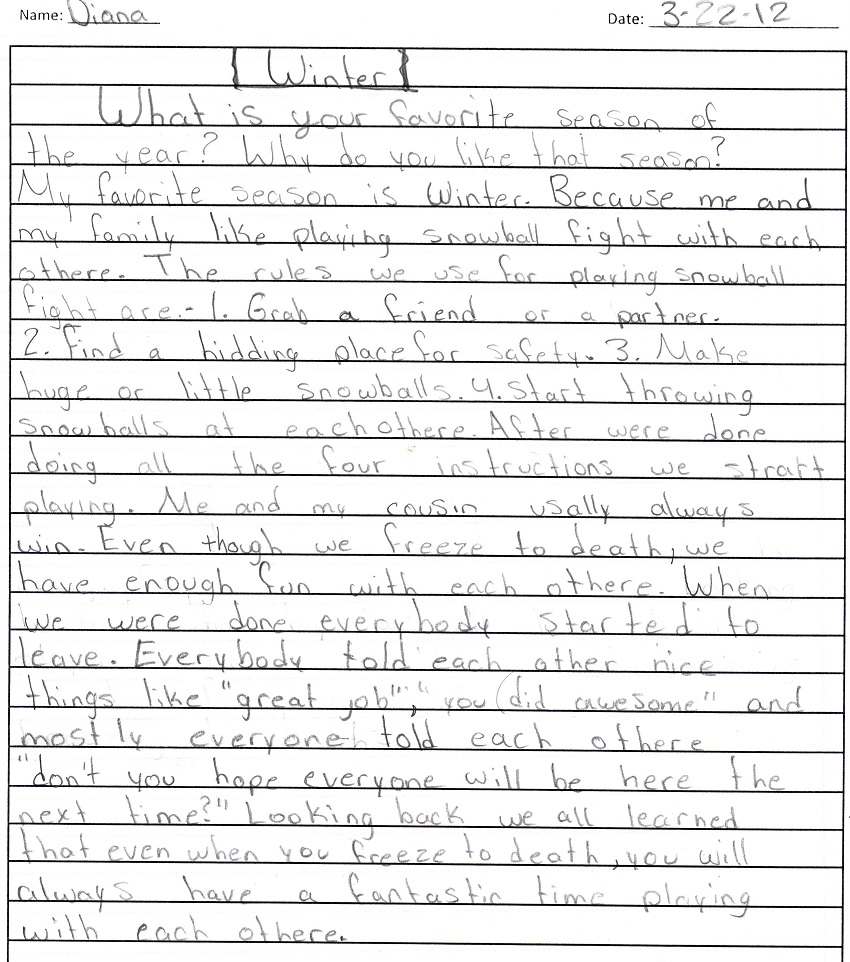 Name: Diana Date: 3-22-12
[Winter]
What is your favorite season of
the year? Why do you like that season?
My favorite season is Winter. Because me and
my family like playing snowball fight with each
othere. The rules we use for playing snowball
fight are.- 1. Grab a friend or a partner.
2. find a hidding place for safety. 3. Make
huge or little snowballs. 4. Start throwing
snowballs at each othere. After were done
doing all the four instructions we stratt
playing. Me and my cousin usally always
win. Even though we freeze to death, we
have enough fun with each othere. When
we were done everybody started to
leave. Everybody told each other nice
things like "great job", "you did awesome" and
mostly everyone told each othere
"don't you hope everyone will be here the
next time?" Looking back we all learned
that even when you freeze to death, you will
always have a fantastic time playing
with each othere.